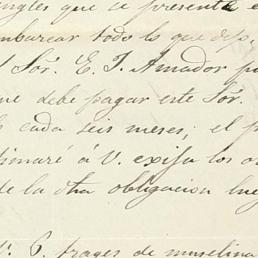 ingles que se presente e
embarcar todo lo que dep,
l Sõr. E. J. Amador pa
ue debe pagar este Sõr.
cada seis meses; el p
tionaré á V. exija los
de la otra obligacion lue
6 trages de muselina